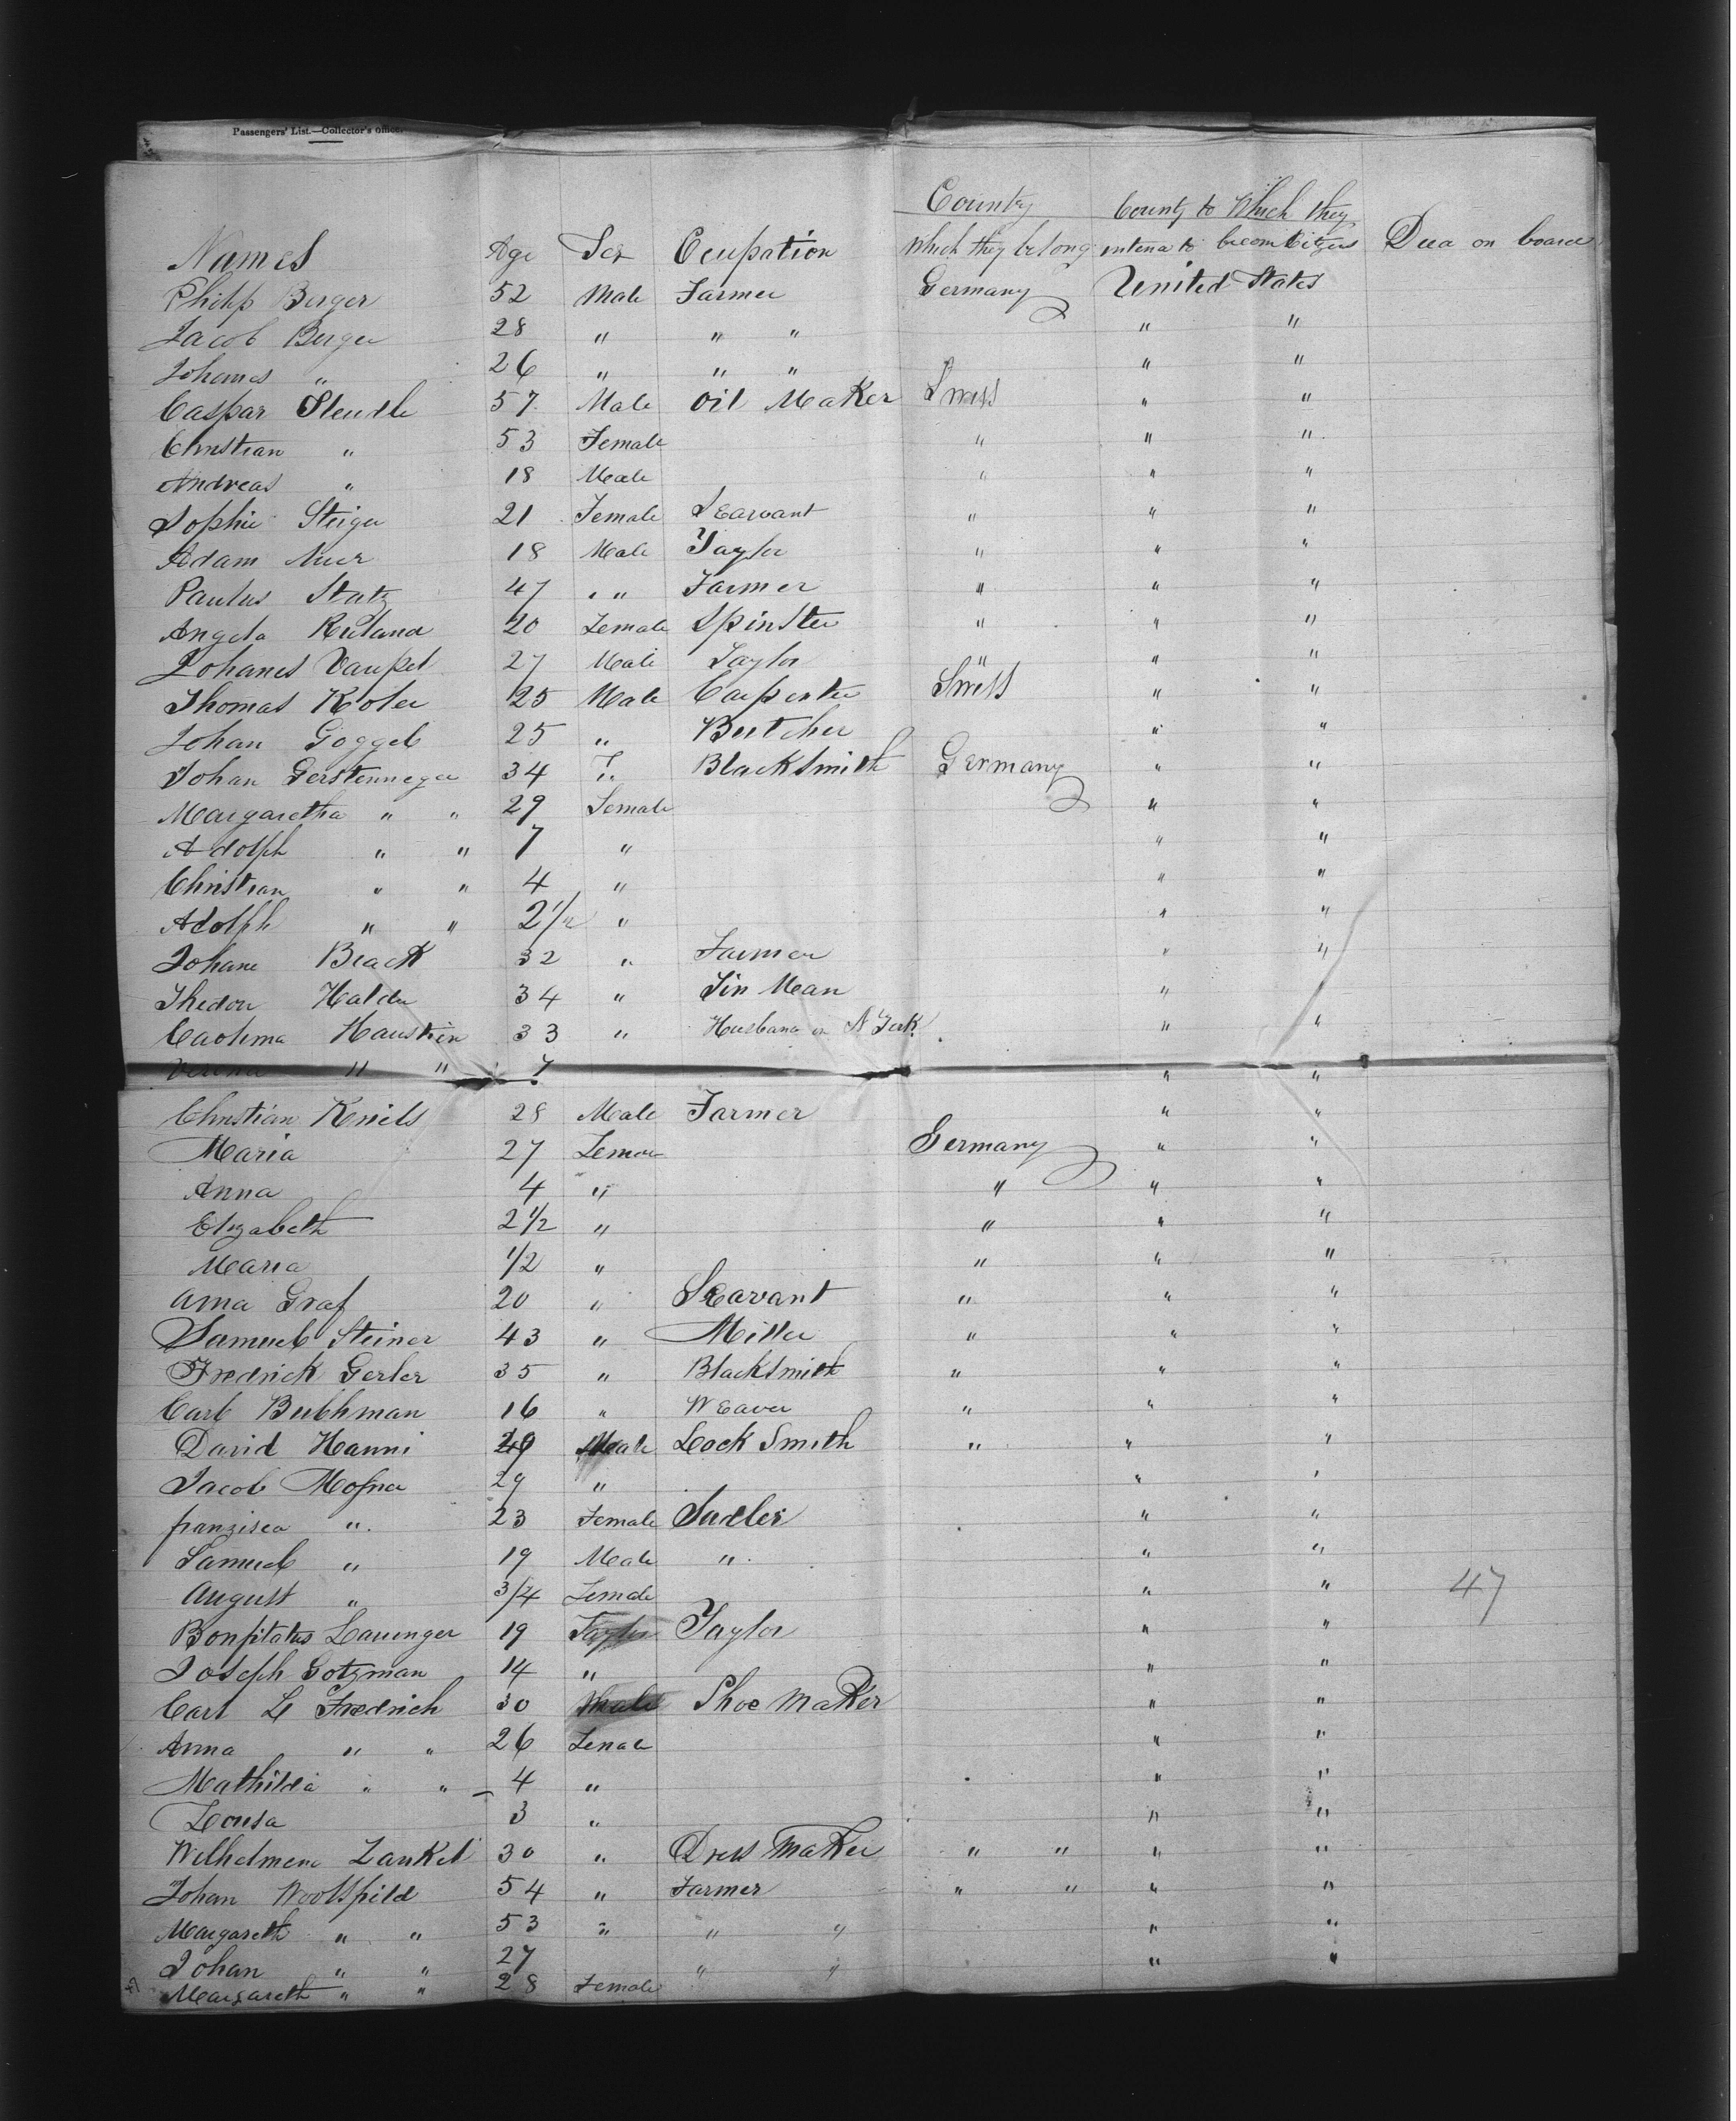 Passengers' List.—Collector's office.
County County to Which they
Names Age Sex Ocupation Which they belong intend to becom Citzens Died on board
Philip Berger 52 Male Farmer Germany United States
Jacob Berger 28 " " " " "
Johanes " 26 " " " " "
Caspar Steudle 57 Male Oil Maker Swiss " "
Christian " 53 Female " " "
Andreas " 18 Male " " "
Sophie Steiger 21 Female Searvant " " "
Adam Auer 18 Male Taylor " " "
Paulus Statz 47 " " Farmer " " "
Angela Ruland 20 Female Spinster " " "
Johanes Vaupel 27 Male Taylor " " "
Thomas Koler 25 Male Carpenter Swiss " "
Johan Goggel 25 " Butcher " "
Johan Gerstenneger 34 F. Blacksmith Germany " "
Margaretha " " 29 Female " "
Adolph " " 7 " " "
Christian " " 4 " " "
Adolph " " 2 1/2 " " "
Johane Brack 32 " Farmer " "
Thedor Halder 34 " Tin Man " "
Haustein 33 " Husband in N York " "
Verena " " 7 " "
Christian Kniels 28 Male Farmer " "
Maria 27 Femae Germany " "
Anna 4 " " " "
Elizabeth 2 1/2 " " " "
Maria 1/2 " " " "
Anna Graf 20 " Searvant " " "
Samuel Steiner 43 " Miller " " "
Fredrick Gerler 35 " Blacksmith " " "
Carl Buhhman 16 " Weaver " " "
David Hanni 29 Male Lock Smith " " "
Jacob 29 " " "
franzisca " 23 Female Sadler " "
Samuel " 19 Male " " "
August " 3/4 Female " " 47
Lauinger 19 Taylor Taylor " "
Joseph Gotzman 14 " " "
Carl L Fredrich 30 Male Shoe Maker " "
Anna " " 26 Femae " "
Mathilda " " 4 " " "
Louisa 3 " " "
Wilhelmene Zankel 30 " Dress Maker " " " "
Johan Woolfpild 54 " Farmer " " " "
Margareth " " 53 " " " " "
Johan " " 27 " " " "
Margareth " " 28 Female